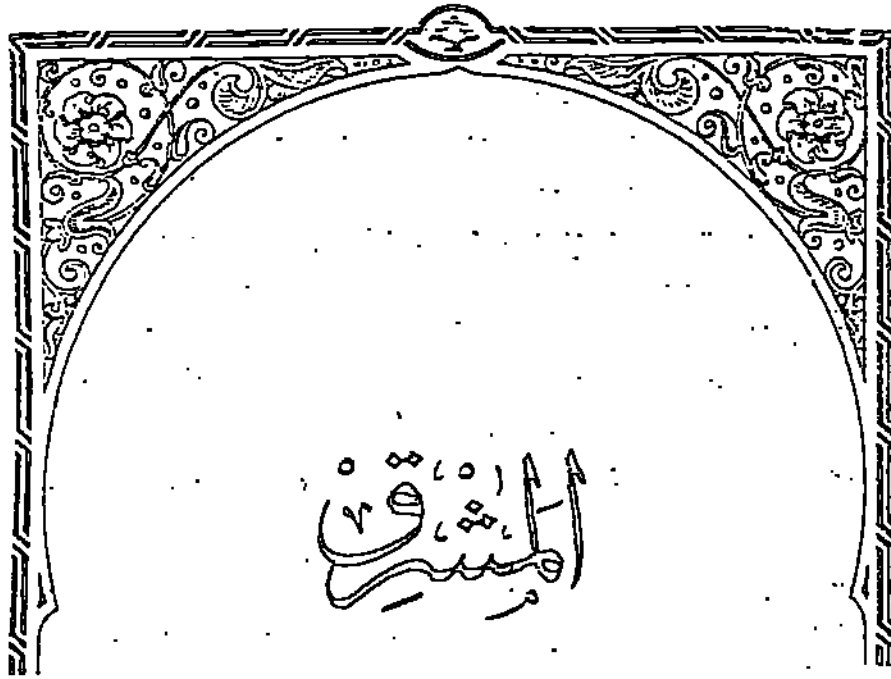 المشرق